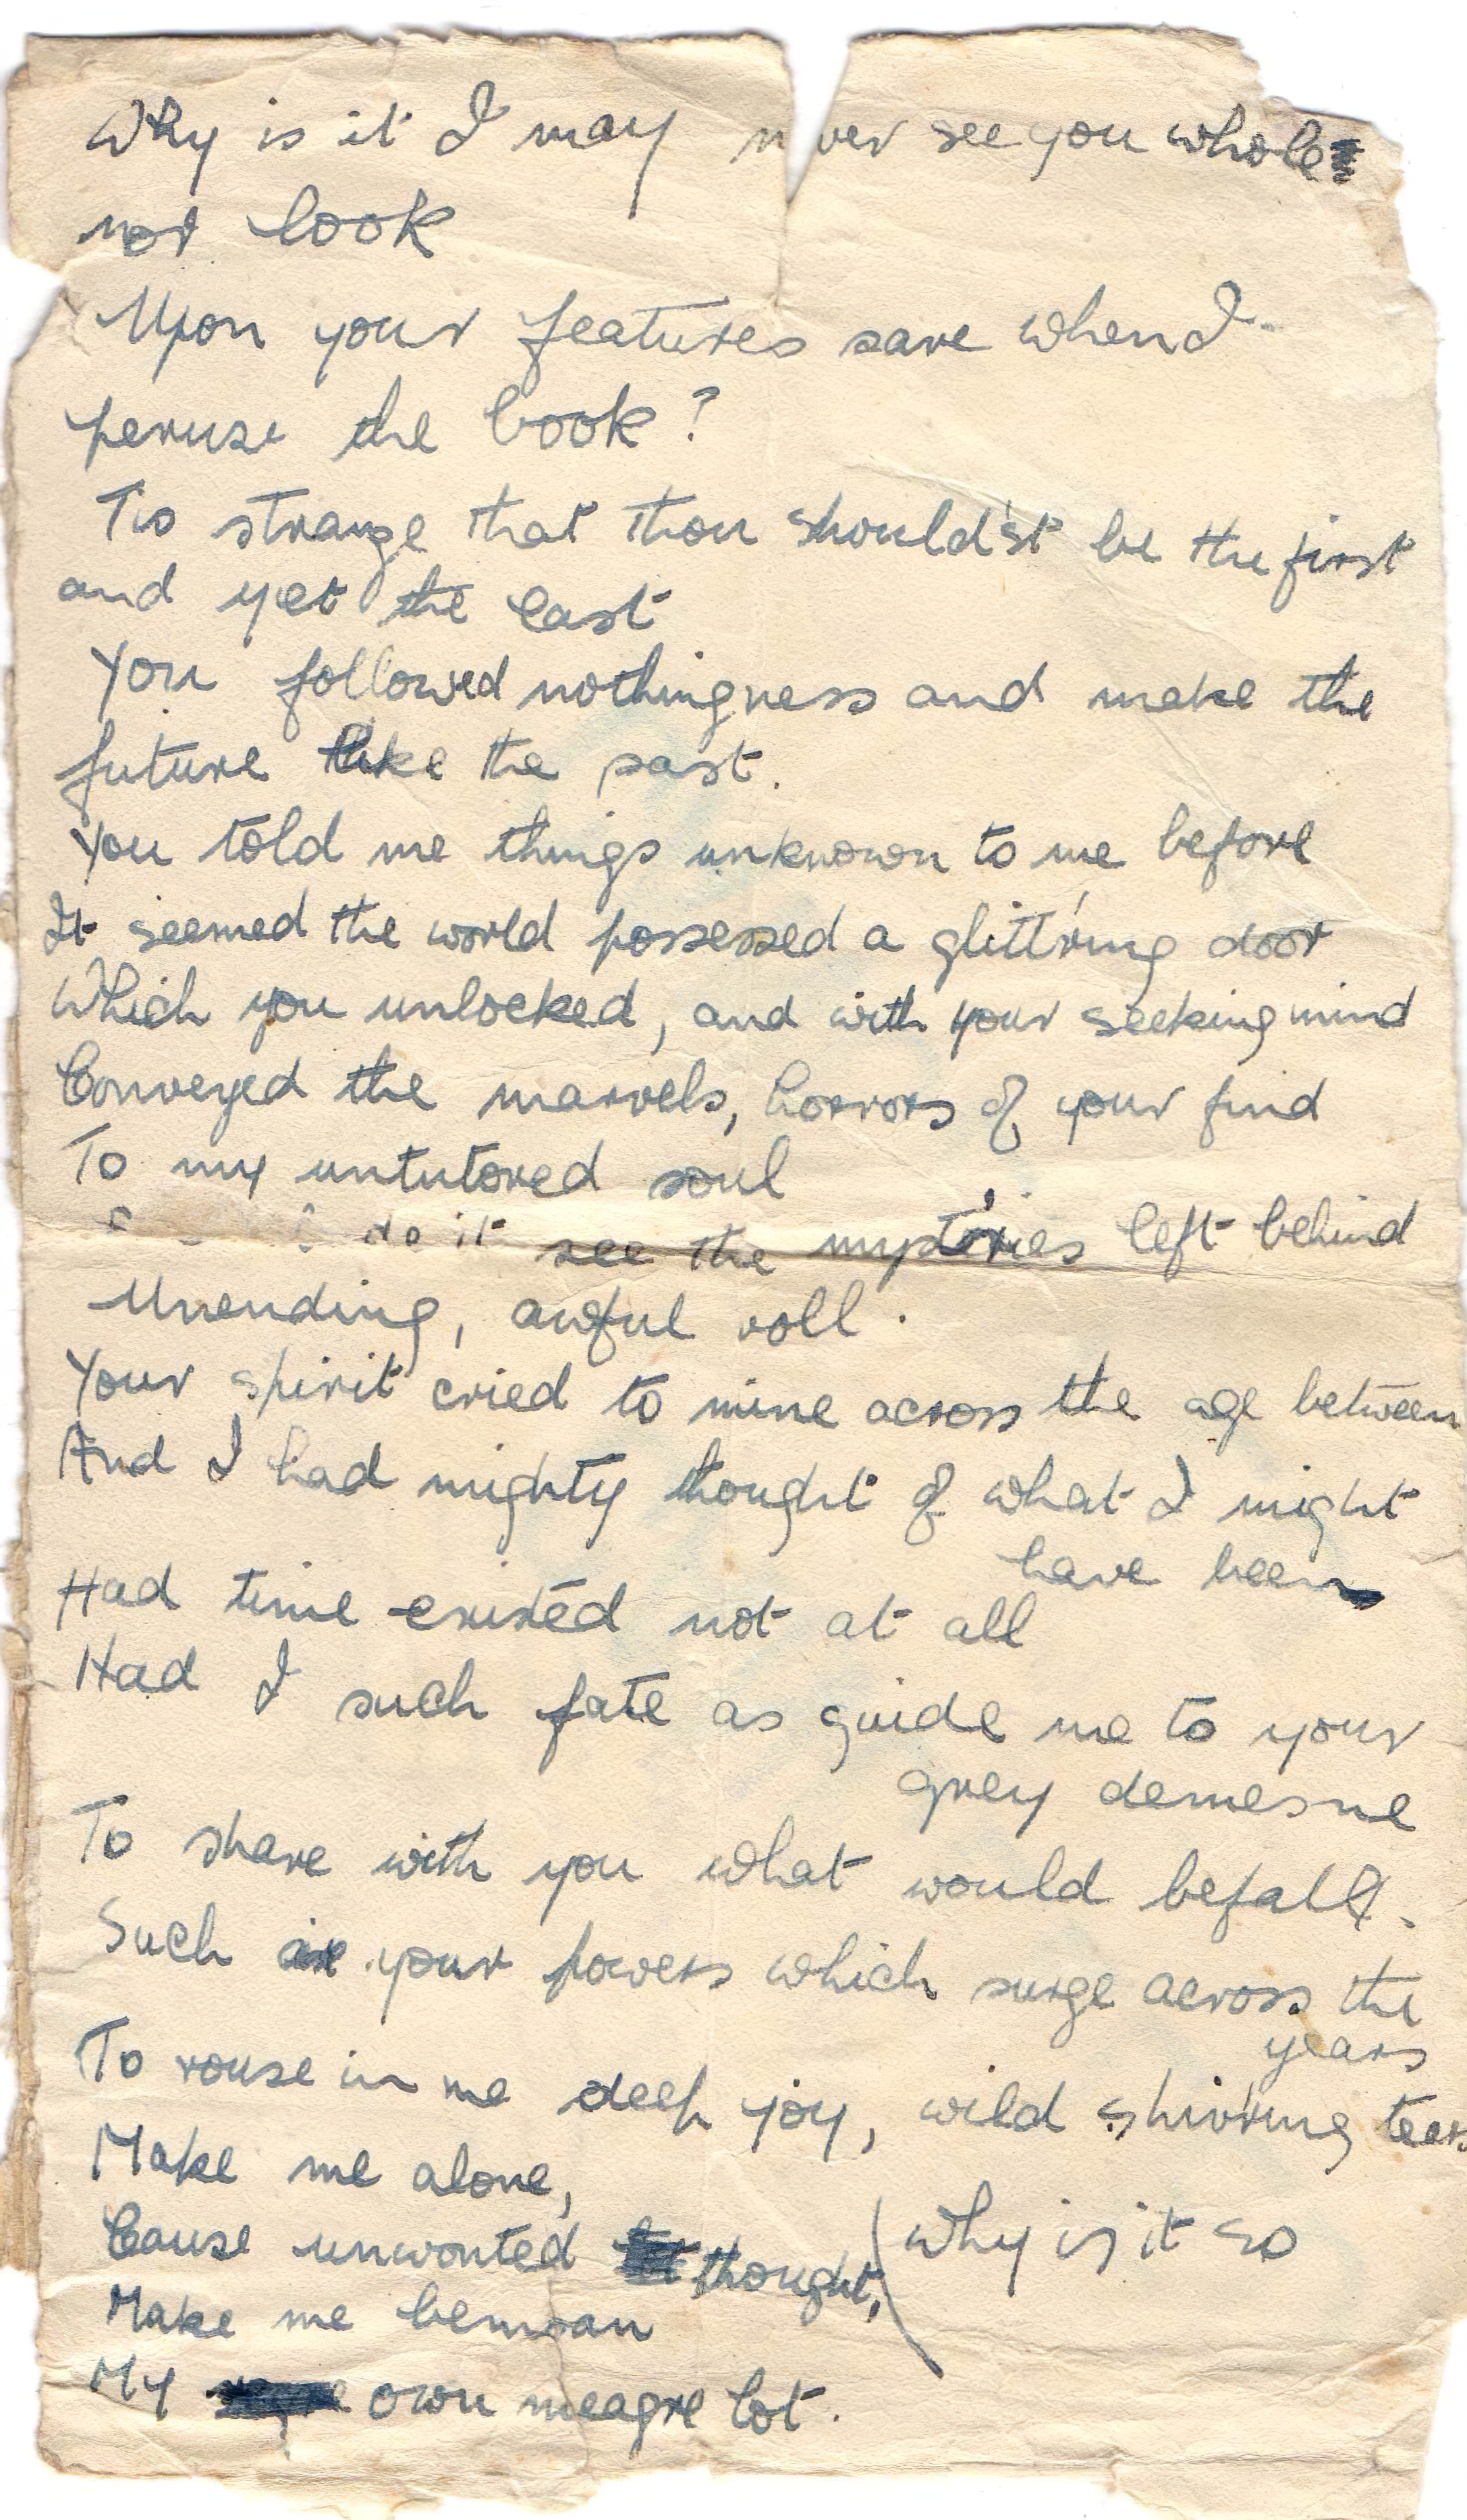 Why is it I may never see you whole
nor look
Upon your features save when I
peruse the book?
Tis strange that thou should'st be the first
and yet the last
You followed nothingness and make the
future like the past.
You told me things unknown to me before
It seemed the world possessed a glitt'ring door
Which you unlocked, and with your seeking mind
Conveyed the marvels, horrors of your find
To my untutored soul
do it see the myst'ries left behind
Unending, awful roll.
Your spirit cried to mine across the age between
And I had mighty thought of what I might
have been
Had time existed not at all
Had I such fate as guide me to your
grey demesne
To share with you what would befall.
Such are your powers which surge across the
years
To rouse in me deep joy, wild shiv'ring tears
Make me alone,
Cause unwonted thought, (Why is it so
Make me bemoan
My own meagre lot.